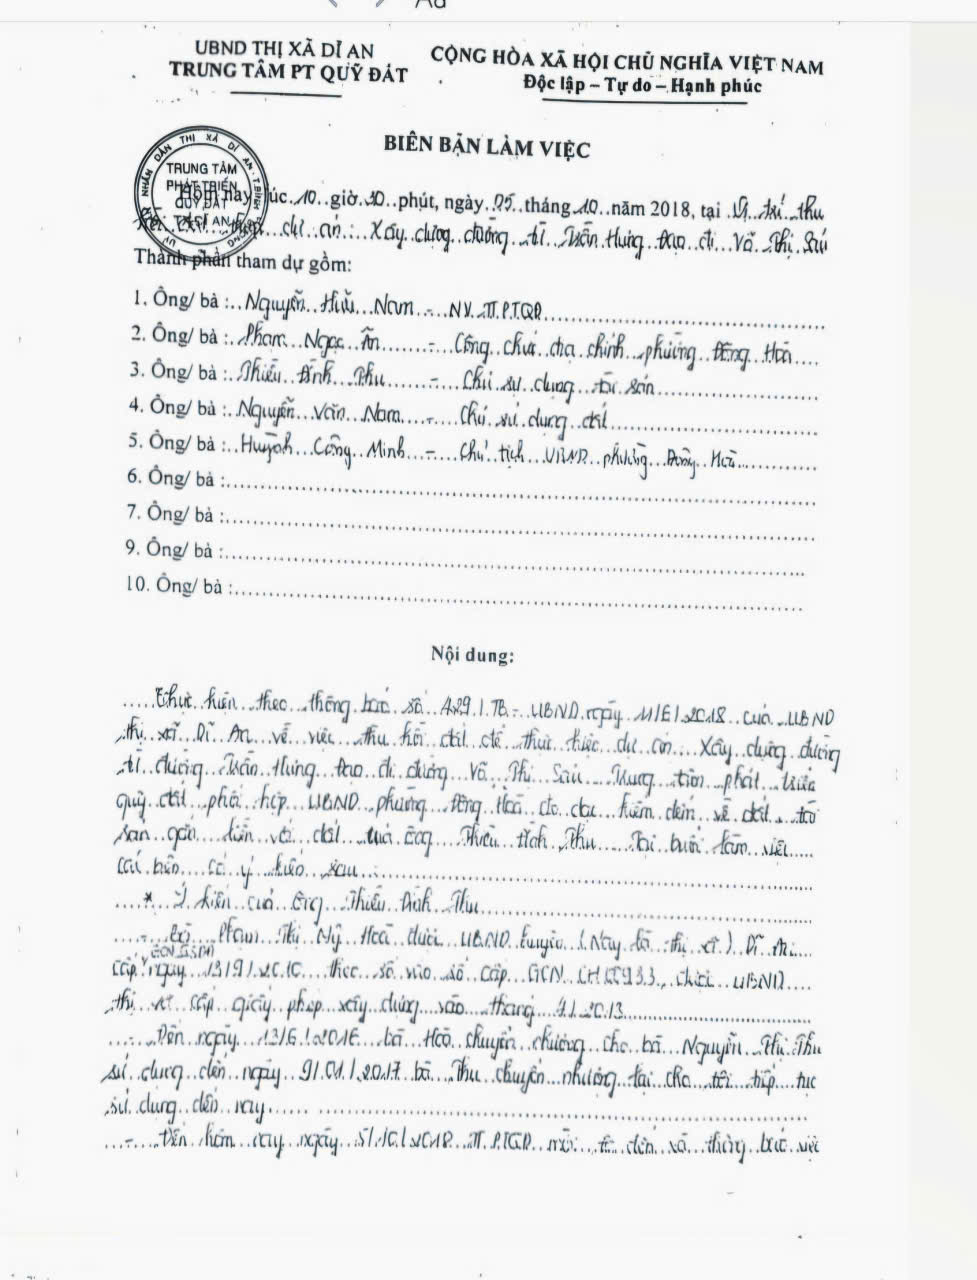 Aa
UBND THỊ XÃ DĨ AN
TRUNG TÂM PT QUỸ ĐẤT
CỘNG HÒA XÃ HỘI CHỦ NGHĨA VIỆT NAM
Độc lập – Tự do – Hạnh phúc
BIÊN BẢN LÀM VIỆC
TRUNG TÂM
PHÁT TRIỂN
QUỸ ĐẤT
Hôm nay lúc 10 giờ 30 phút, ngày 05 tháng 10 năm 2018, tại vị trí thu
dự án: Xây dựng đường từ Trần Hưng Đạo đi Võ Thị Sáu
Thành phần tham dự gồm:
1. Ông/ bà : Nguyễn Hữu Nam - NV. TT.PTQĐ
2. Ông/ bà : Phạm Ngọc Ân - Công chức địa chính phường Đông Hòa
3. Ông/ bà : Thiều Đình Thu - Chủ sử dụng tài sản
4. Ông/ bà : Nguyễn Văn Nam - Chủ sử dụng đất
5. Ông/ bà : Huỳnh Công Minh - Chủ tịch UBND phường Đông Hòa
6. Ông/ bà :
7. Ông/ bà :
9. Ông/ bà :
10. Ông/ bà :
Nội dung:
Thực hiện theo thông báo số 429/TB-UBND ngày 11/6/2018 của UBND
thị xã Dĩ An về việc thu hồi đất để thực hiện dự án Xây dựng đường
từ đường Trần Hưng Đạo đi đường Võ Thị Sáu. Trung tâm phát triển
quỹ đất phối hợp UBND phường Đông Hòa đo đạc kiểm đếm về đất, tài
sản gắn liền với đất của ông Thiều Đình Thu. Tại buổi làm việc
các bên có ý kiến sau:
* Ý kiến của ông Thiều Đình Thu
- Bà Phạm Thị Mỹ Hoà được UBND huyện (Nay là thị xã) Dĩ An
cấp ngày 13/9/2010 theo số vào sổ cấp GCN CH 01933, được UBND
thị xã cấp giấy phép xây dựng vào tháng 4/2013
- Đến ngày 13/6/2016 bà Hoà chuyển nhượng cho bà Nguyễn Thị Thu
sử dụng đến ngày 91/01/2017 bà Thu chuyển nhượng lại cho tôi tiếp tục
sử dụng đến nay
- Đến hôm nay ngày 5/10/2018 TT.PTQĐ mời tôi đến và thông báo việc